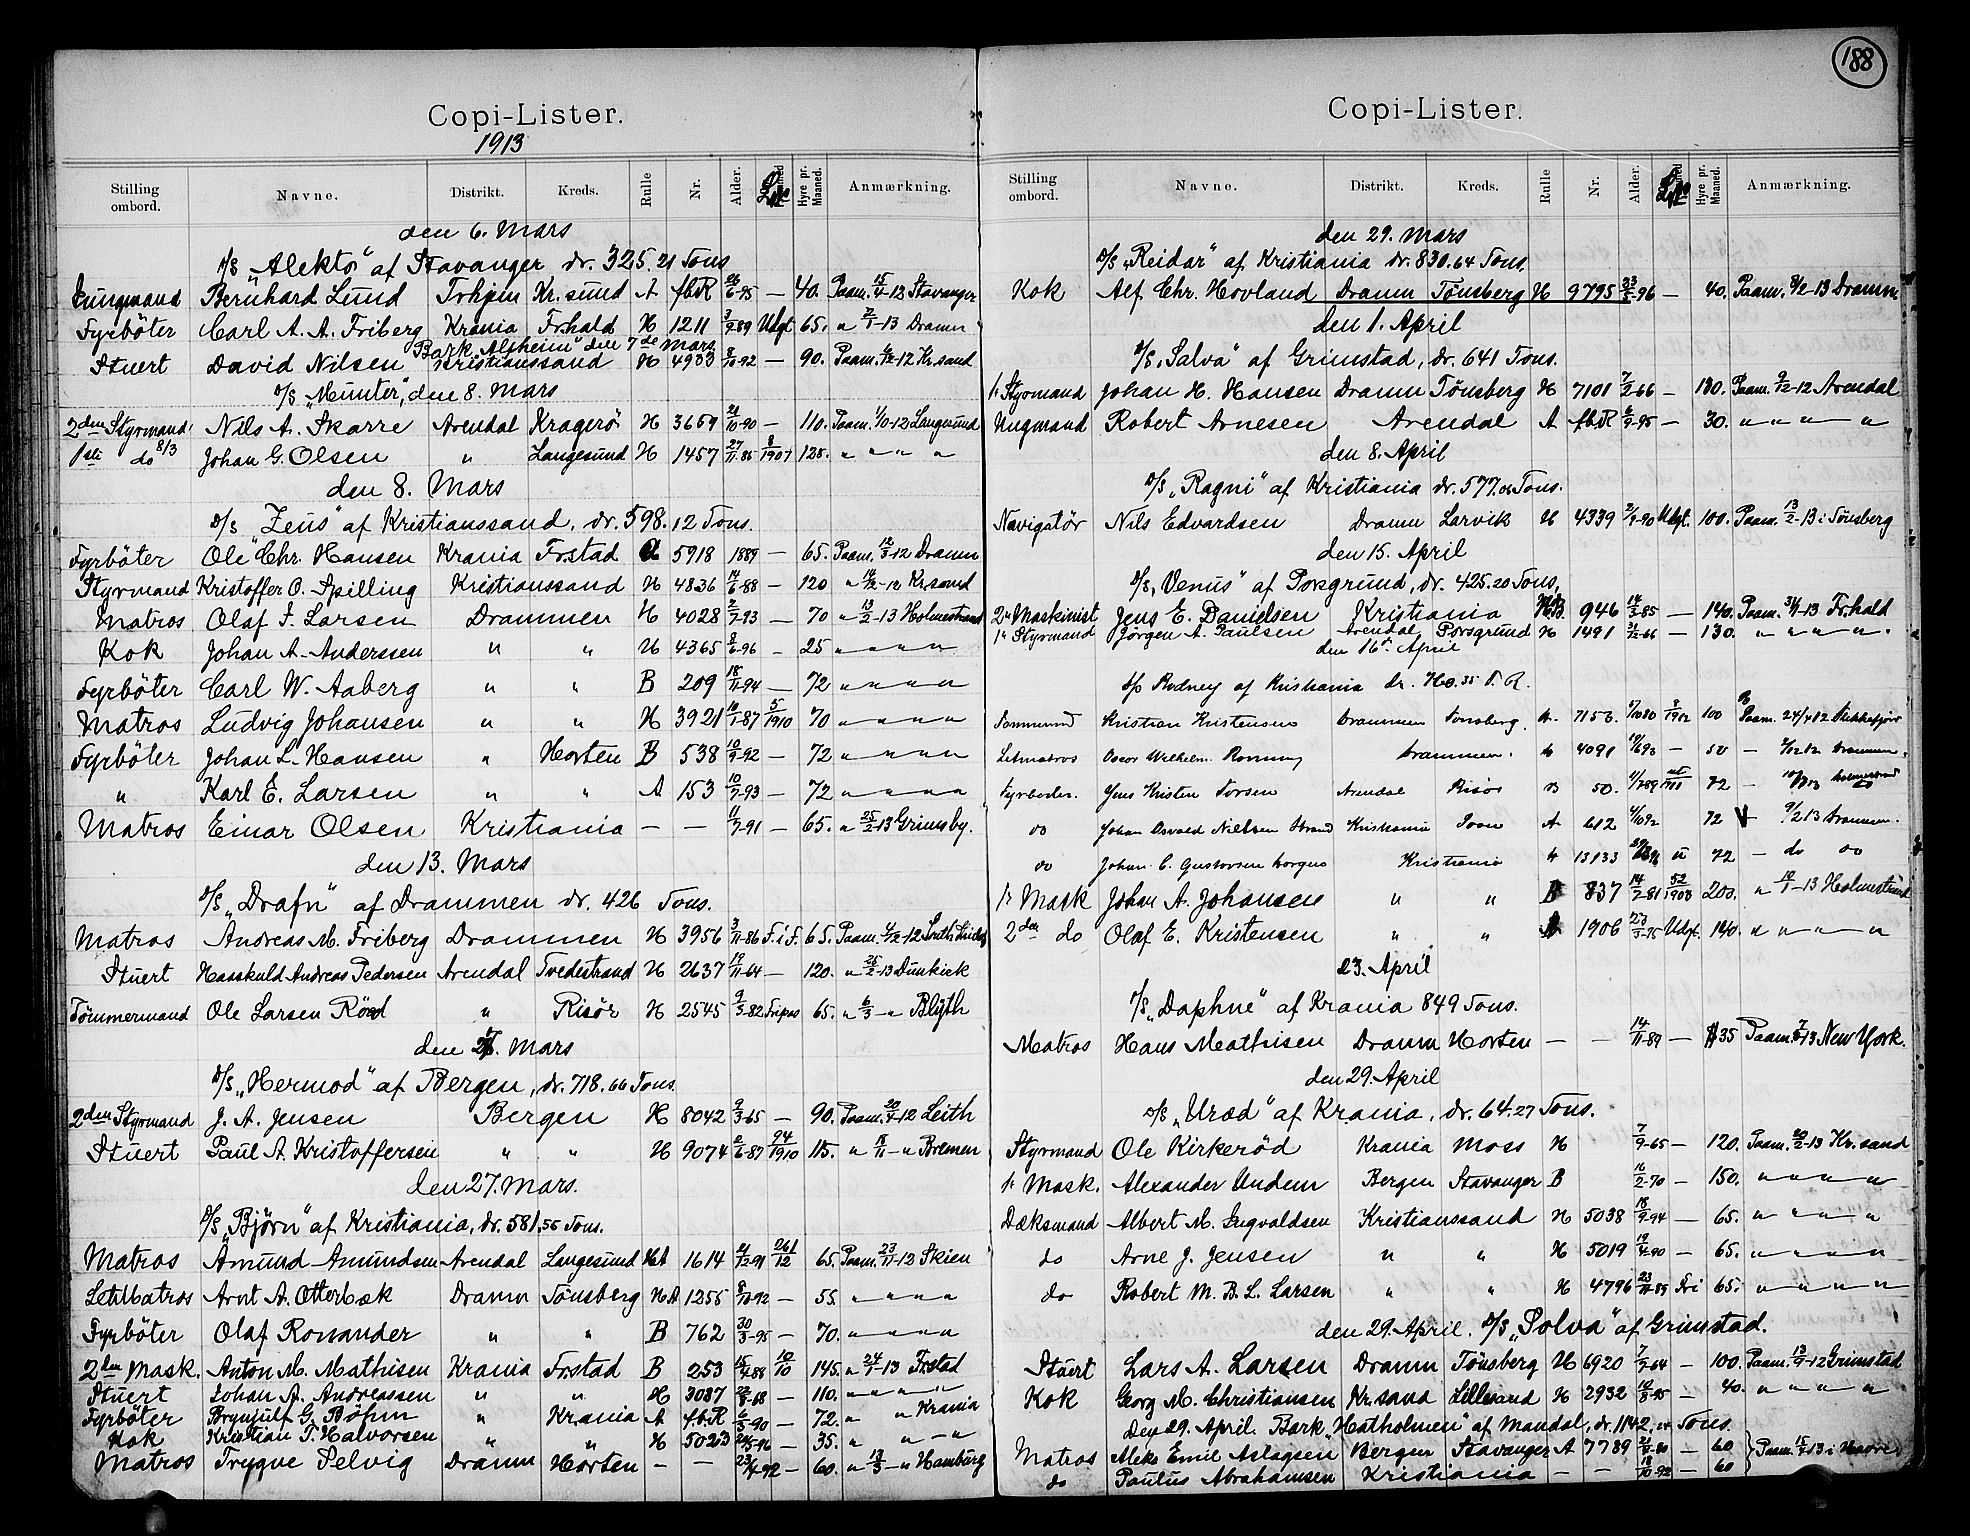 188
Copi-Lister.
1913
Stilling ombord. Navne. Distrikt. Kreds. Rulle Nr. Alder. Hyre pr. Maaned. Anmærkning.
den 6. Mars
D/S „Alekto" af Stavanger dr. 325.21 Tons
Jungmand Bernhard Lund Trhjem Kr.sund A fbR 26/6-95 — 40. Paam. 15/4-12 Stavanger
Fyrböter Carl A. A. Friberg Krania Frhald H 1211 3/9 89 Udgt 65. " 2/1-13 Dramn
Bark „Alsheim" den 7de Mars
Stuert David Nilsen Kristianssand H 4903 8/10-92 — 90. Paam. -12 Kr.sand
D/S „Munter", den 8. Mars
2den Styrmand Nils A. Skarre Arendal Kragerö H 3659 21/10-90 — 110. Paam. 1/10-12 Langesund
1ste do 8/3 Johan G. Olsen " Langesund H 1457 27/11-85 8/1907 125. " " " "
den 8. Mars
D/S „Zeus" af Kristianssand, dr. 598.12 Tons.
Fyrböter Ole Chr. Hansen Krania Frstad A 5918 1889 — 65. Paam. 12/3-12 Dramn
Styrmand Kristoffer O. Spilling Kristianssand H 4836 14/6-88 — 120 " 14/2-12 Kr.sand
Matros Olaf F. Larsen Drammen H 4028 2/7-93 — 70 " 13/2-13 Holmestrand
Kok Johan A. Anderssen " " H 4365 8/6-96 — 25 " " " "
Fyrböter Carl W. Aaberg " " B 209 18/11-94 — 72 " " " "
Matros Ludvig Johansen " " H 3921 10/1-87 5/1910 70 " " " "
Fyrböter Johan L. Hansen " Horten B 538 10/9-92 — 72 " " " "
" Karl E. Larsen " " A 153 10/7-93 — 72 " " " "
Matros Einar Olsen Kristiania — — 11/7-91 — 65. " 25/2-13 Grimsby.
den 13. Mars
D/S „Drafn" af Drammen dr. 426 Tons.
Matros Andreas M. Friberg Drammen H 3956 3/11-86 F.i.F. 65. Paam. 4/2-12 South Shields
Stuert Hasskuld Andreas Pedersen Arendal Tvedestrand H 2637 19/11-64 — 120. " 26/2-13 Dunkirk
Tömmermand Ole Larsen Röed " Risör H 2545 9/3-82 Fripas 65. " 6/3-" Blyth
den . Mars
D/S „Hermod" af Bergen, dr. 718.66 Tons.
2den Styrmand J. A. Jensen Bergen H 8042 9/3-65 — 90. Paam. 20/4-12 Leith
Stuert Paul A. Kristoffersen " " H 9074 2/6-87 94/1910 115. " 18/11-" Bremen
den 27. Mars.
D/S „Björn" af Kristiania, dr. 581,55 Tons.
Matros Amund Amundsen Arendal Langesund HA 1614 21/12-91 261/12 65. Paam. 23/11-12 Skien
Letmatros Arnt A. Otterbæk Dramn Tönsberg HA 1255 8/10-92 — 55. " " " "
Fyrböter Olaf Ronander " " B 762 30/3-95 — 70. " " " "
2den Mask. Anton M. Mathisen Krania Frstad B 253 15/4-88 10/10 145. " 24/1-13 Frstad
Stuert Johan A. Andreassen " " H 3087 22/8-68 — 110. " " " "
Fyrböter Brynjulf G. Böhm " Krania A fbR 6/3-90 — 72. " " Krania
Kok Kristian T. Halvorsen " " H 5023 — 35. " " — "
Matros Trygve Selvig Dramn Horten — — 23/4-92 — 60. " 13/3-" Hamburg
Copi-Lister.
Stilling ombord. Navne. Distrikt. Kreds. Rulle Nr. Alder. Hyre pr. Maaned. Anmærkning.
den 29. Mars
D/S „Reidar" af Kristiania dr. 830.64 Tons.
Kok Alf Chr. Hovland Dramn Tönsberg H 9795 23/8-96 — 40. Paam. -13 Dramn.
den 1. April
D/S „Salva" af Grimstad, dr. 641 Tons.
1ste Styrmand Johan H. Hansen Dramn Tönsberg H 7101 7/2-66 — 130. Paam. 9/12-12 Arendal
Ungmand Robert Arnesen Arendal A fbR 2/9-95 — 30. " " " "
den 8. April
D/S „Ragni" af Kristiania dr. 577. Tons.
Navigatör Nils Edvardsen Dramn Larvik H 4339 2/9-90 Udgt. 100. Paam. 13/2-13 i Tönsberg
den 15. April
D/S „Venus" af Porsgrund, dr. 425.20 Tons.
2den Maskinist Jens E. Danielsen Kristiania HB 946 14/3-85 — 140. Paam. 31/1-13 Frhald
1ste Styrmand Jörgen A. Paulsen Arendal Porsgrund H 1491 3/12-66 — 130. " " " "
den 16. April
D/S Rodney af Kristiania dr. T. R.
Kristian Kristensen Drammen Tönsberg. H. 7156. 100 Paam. 24/4 12
Letmatros Oscar Wilhelm Ronning Drammen. H 4091 — 50 — Drammen.
Fyrböder. Jens Kristen Torsen Arendal Risör B 50. 72 —
do Johan Osvald Nielsen Strand Kristiania A 612 4/10 92 72 — 9/2 13 Drammen.
do Johan C. Gustavsen Kristiania H 13133 72 — do do
1ste Mask Johan A. Johansen " " B 837 14/2-81 52/1903 200. " 18/1-13 Holmestrand
2den do Olaf E. Kristensen " " A 1906 23/3-75 Udgt. 140. " " " "
23. April
D/S „Daphne" af Krania 849 Tons.
Matros Hans Mathisen Dramn Horten — — 14/11-89 — $35 Paam. -13 New York.
den 29. April
D/S „Uræd" af Krania, dr. 64.27 Tons.
Styrmand Ole Kirkeröd Krania Moss H 7/9-65 — 120. Paam. 20/2-13 Kr.sand
1ste Mask. Alexander Undem Bergen Stavanger B 16/2-70 — 150. " " " "
Dæksmand Albert M. Ingvaldsen Kristianssand H 5038 18/9-94 — 65. " " " "
do Arne J. Jensen " " H 5019 19/4-90 — 65. " " " "
do Robert M. B. L. Larsen " " H 4796 23/11-89 Fri 65. " " " "
den 29. April. D/S „Solva" af Grimstad.
Stuert Lars A. Larsen Dramn Tönsberg H 6920 7/7-64 — 100. Paam. 13/9-12 Grimstad
Kok Georg M. Christiansen Kr.sand Lillesand H 2932 12/8-95 — 40. " " " "
Den 29. April. Bark „Hatholmen" af Mandal, dr. 1142,24 Tons.
Matros Meke Emil Aslagsen Bergen Stavanger A 7789 21/9-80 — 60 } Paam. 15/4-13 i Havre
do Paulus Abrahamsen Kristiania — — 18/10-92 — 60